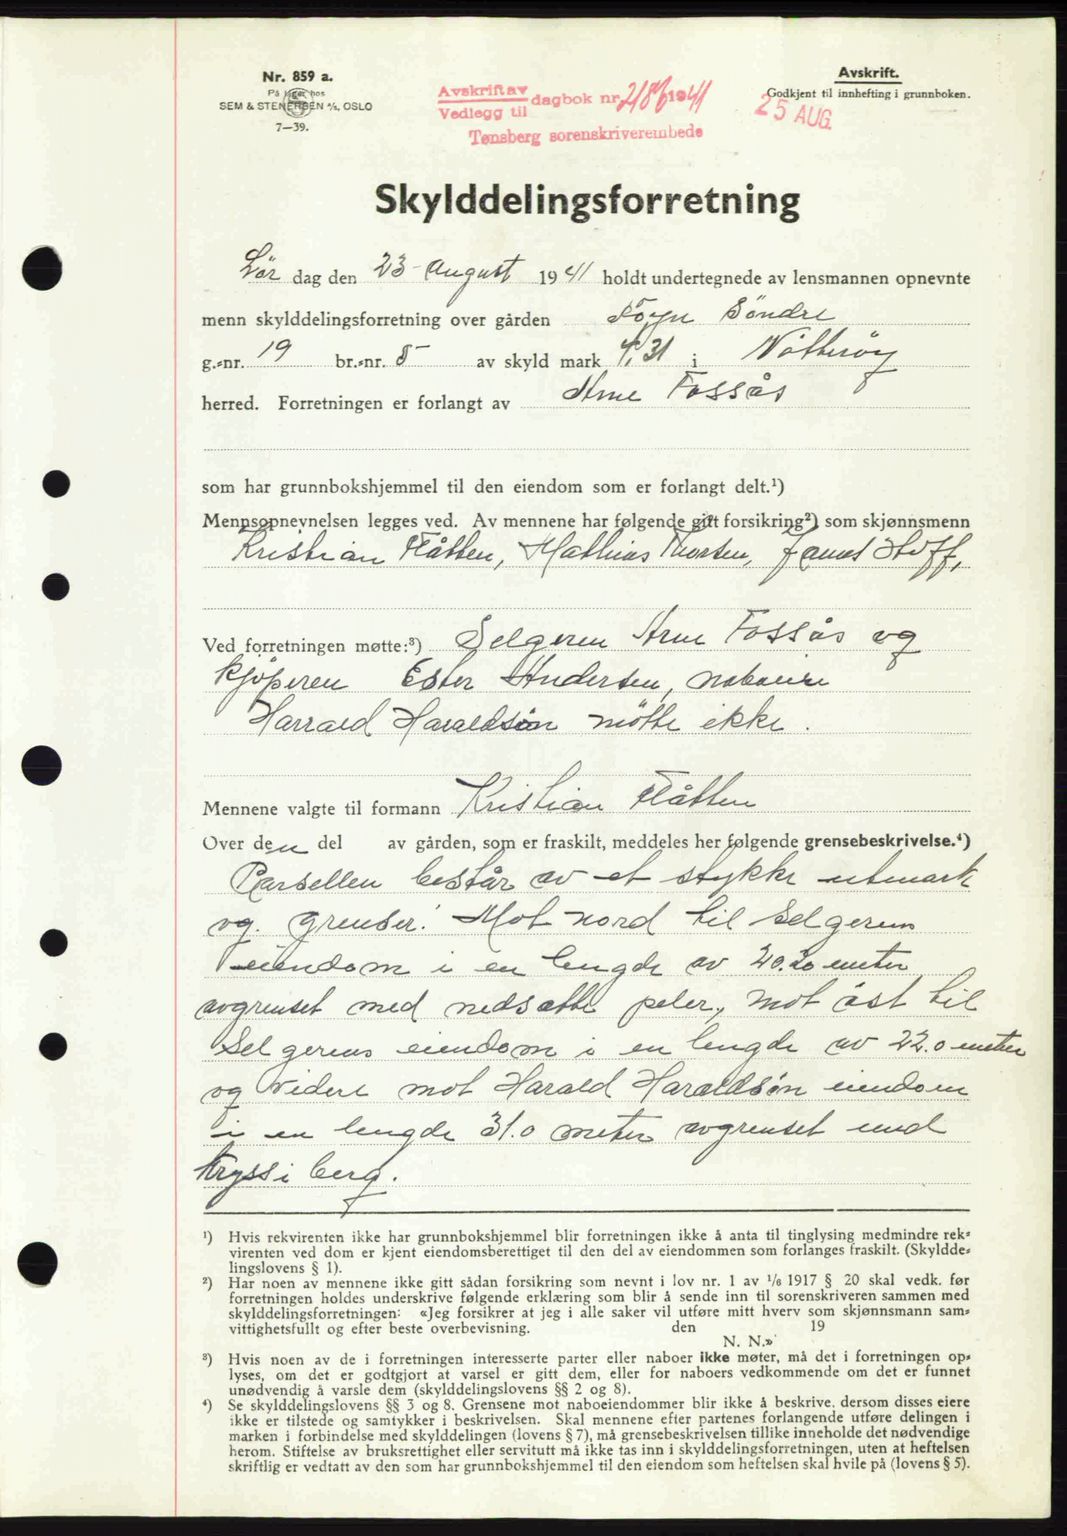 Nr. 859 a.
På lager hos
SEM & STENERSEN A/S, OSLO
7—39.
Avskrift av
Vedlegg til
dagbok nr. 2186 1941
Tønsberg sorenskriverembede
Avskrift.
Godkjent til innhefting i grunnboken.
25 AUG.
Skylddelingsforretning
Lør dag den 23 August 1941 holdt undertegnede av lensmannen opnevnte
menn skylddelingsforretning over gården Föyn Söndre
g.-nr. 19 br.-nr. 5 av skyld mark 4,31 i Nötteröy
herred. Forretningen er forlangt av Arne Fossås
som har grunnbokshjemmel til den eiendom som er forlangt delt.¹)
Mennsopnevnelsen legges ved. Av mennene har følgende gitt forsikring²) som skjønnsmenn
Kristian Flåtten, Mathias Thorsen, James Hoff,
Ved forretningen møtte:³) Selgeren Arne Fossås og
kjöperen Ester Andersen, naboeire
Harrald Haraldsön mötte ikke.
Mennene valgte til formann Kristian Flåtten
Over den del av gården, som er fraskilt, meddeles her følgende grensebeskrivelse.⁴)
Parsellen består av et stykke utmark
og grenser: Mot nord til Selgerens
eiendom i en lengde av 20.20 meter
avgrenset med nedsatte peler, mot öst til
Selgerens eiendom i en lengde av 22.0 meter
og videre mot Harald Haraldsön eiendom
i en lengde 31.0 meter avgrenset med
kryss i berg.
¹) Hvis rekvirenten ikke har grunnbokshjemmel blir forretningen ikke å anta til tinglysing medmindre rek-
virenten ved dom er kjent eiendomsberettiget til den del av eiendommen som forlanges fraskilt. (Skyldde-
lingslovens § 1).
²) Har noen av mennene ikke gitt sådan forsikring som nevnt i lov nr. 1 av 1/6 1917 § 20 skal vedk. før
forretningen holdes underskrive følgende erklæring som blir å sende inn til sorenskriveren sammen med
skylddelingsforretningen: «Jeg forsikrer at jeg i alle saker vil utføre mitt hverv som skjønnsmann sam-
vittighetsfullt og efter beste overbevisning. den 19
N. N.»
³) Hvis noen av de i forretningen interesserte parter eller naboer ikke møter, må det i forretningen op-
lyses, om det er godtgjort at varsel er gitt dem, eller for naboers vedkommende om det er funnet
unødvendig å varsle dem (skylddelingslovens §§ 2 og 8).
⁴) Se skylddelingslovens §§ 3 og 8. Grensene mot naboeiendommer blir ikke å beskrive, dersom disses eiere
ikke er tilstede og samtykker i beskrivelsen. Skal mennene efter partenes forlangende utføre delingen i
marken i forbindelse med skylddelingen (lovens § 7), må grensebeskrivelsen tillike inneholde det nødvendige
herom. Stiftelse av bruksrettighet eller servitutt må ikke tas inn i skylddelingsforretningen, uten at heftelsen
skriftlig er vedtatt av den som har grunnbokshjemmel til den eiendom som heftelsen skal hvile på (lovens § 5).